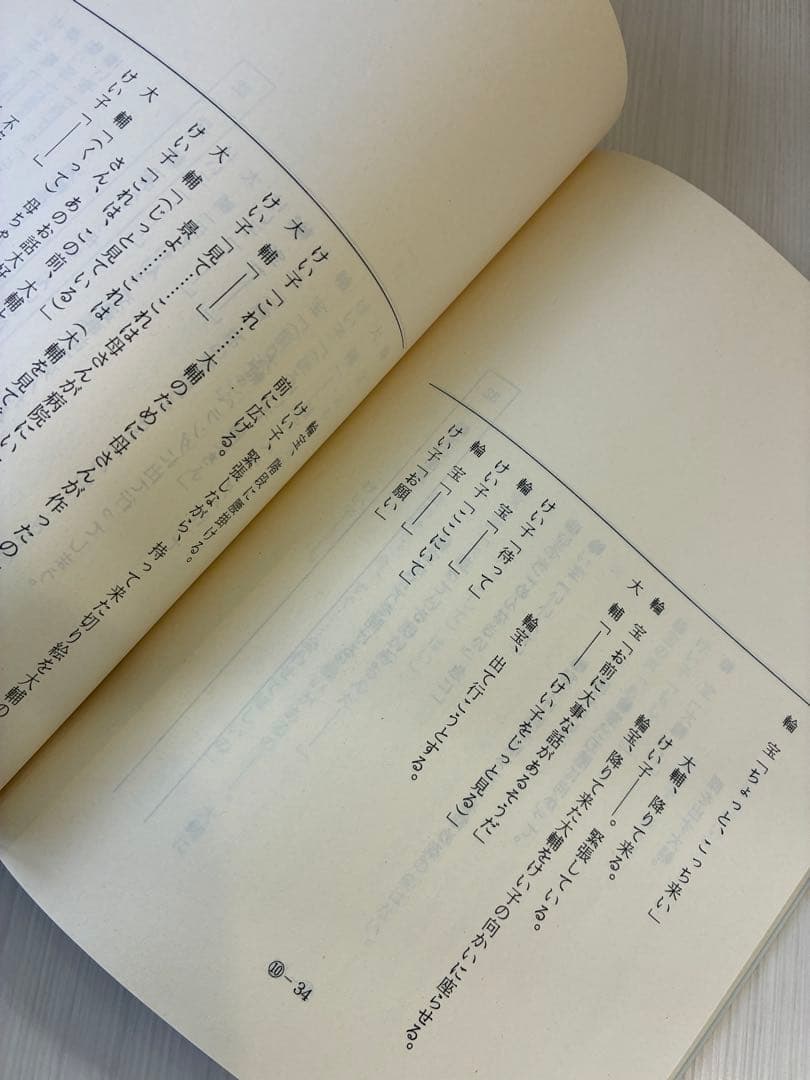 輪 宝「ちょっと、こっち来い」
大輔、降りて来る。
けい子――。緊張している。
輪宝、降りて来た大輔をけい子の向かいに座らせる。
輪 宝「お前に大事な話があるそうだ」
大 輔「――(けい子をじっと見る)」
輪宝、出て行こうとする。
けい子「待って」
輪 宝「――」
けい子「ここにいて」
輪 宝「――」
けい子「お願い」
⑩-34
輪宝、階段に腰掛ける。
けい子、緊張しながら、持って来た切り絵を大輔の
前に広げる。
けい子「これ……大輔のために母さんが作ったの
大 輔「――」
けい子「見て……これは母さんが病院にい
景よ……これは(大輔を見て
大 輔「(じっと見ている)」
けい子「これは、この前、大輔
さん、あのお話大好
大 輔「(くって)母ちゃ
けい子「――」